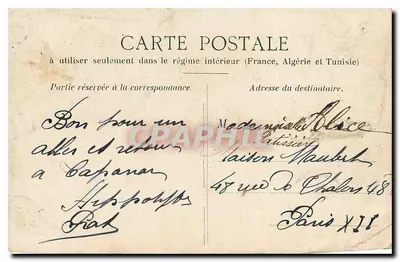 CARTE POSTALE
à utiliser seulement dans le régime intérieur (France, Algérie et Tunisie)
Partie réservée à la correspondance
Adresse du destinataire.
Bon pour un
aller et retour
a
Hippolyte
Rat
Mademoiselle Alice
Maison Maubert
48 rue de Chalons 48
Paris XII